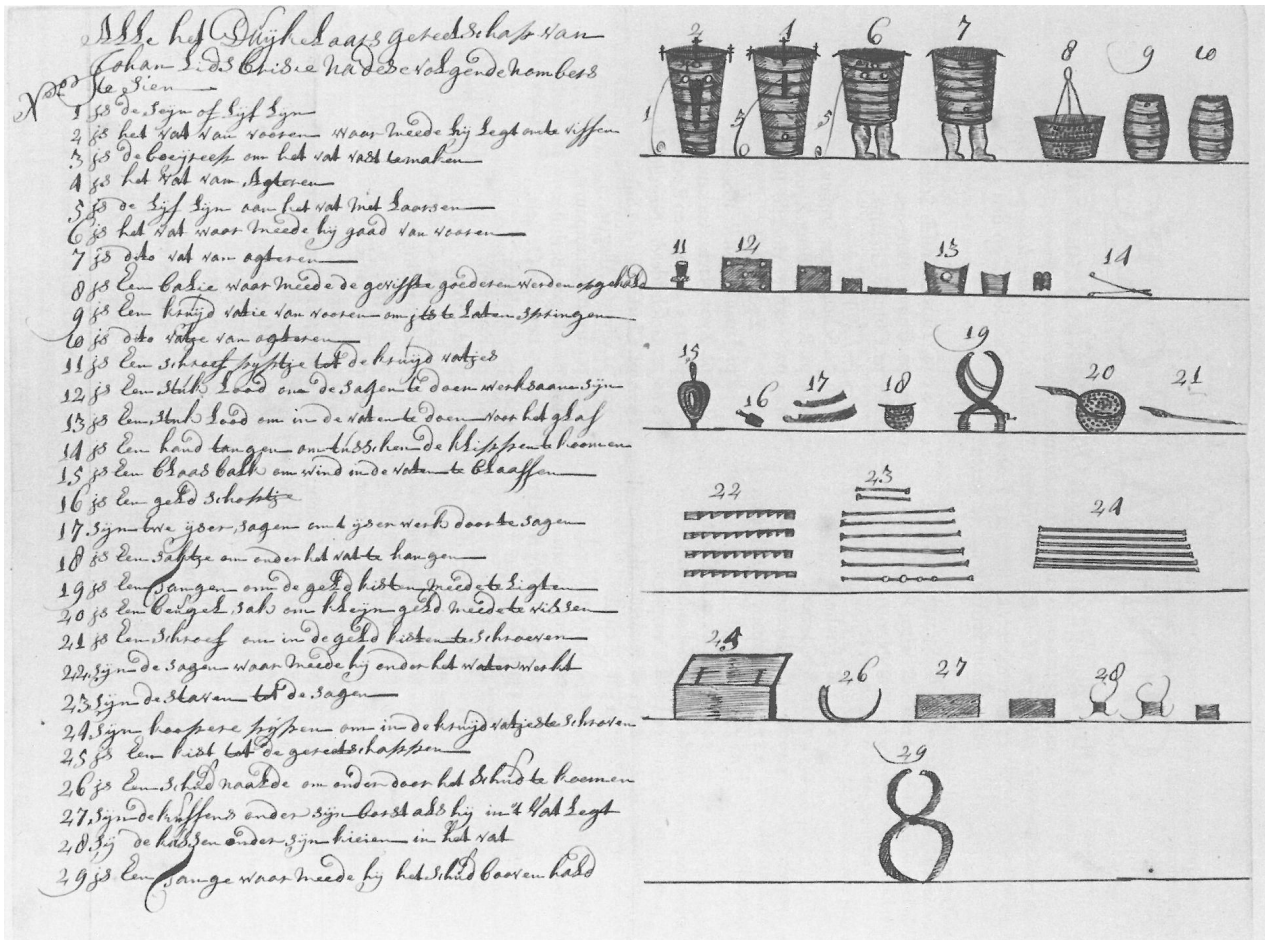 Alle het Duijkelaars gereetschap van
Johan Lids brisie na dese volgende nombers
te sien
No
1 js de seijn of Lijf Lijn
2 js het vat van vooren waar meede hij Legt om te vissen
3 js de boeijreep om het vat vast te maken
4 js het vat van Agteren
5 js de Lijf Lijn aan het vat met Laarsen
6 js het vat waar meede hij gaad van vooren
7 js dito vat van agteren
8 js Een balie waar meede de geviste goederen werden opgehald
9 js Een kruijd vatie van vooren om jts te Laten springen
10 js dito vatje van agteren
11 js Een schroef pijptje tot de kruijd vatjes
12 js Een stuk Lood om de sagen te doen werksaam sijn
13 js Een stuk Lood om in de vaten te doen voor het glas
14 js Een hand tangen om tusschen de klippen te koomen
15 js Een blaas balk om wind in de vaten te blaassen
16 js Een geld schoptje
17 sijn twe ijser sagen om t ijser werk door te sagen
18 js Een sakje om onder het vat te hangen
19 js Een tangen om de geld kisten meede te Ligten
20 js Een beugel sak om kleijn geld meede te vissen
21 js Een schroef om in de geld kisten te schroeven
22 sijn de sagen waar meede hij onder het water werkt
23 sijn de staven tot de sagen
24 sijn koopere pijpen om in de kruijd vatjes te schroven
25 js Een kist tot de gereetschappen
26 js Een schud naalde om onder door het schud te koemen
27 sijn de kussens onder sijn borst als hij in't vat Legt
28 sij de kussen onder sijn kieien in het vat
29 js Een tange waar meede hij het schud booven hald
2 4 6 7 8 9 10
1 3 5
11 12 13 14
15 16 17 18 19 20 21
22 23 24
25 26 27 28
29